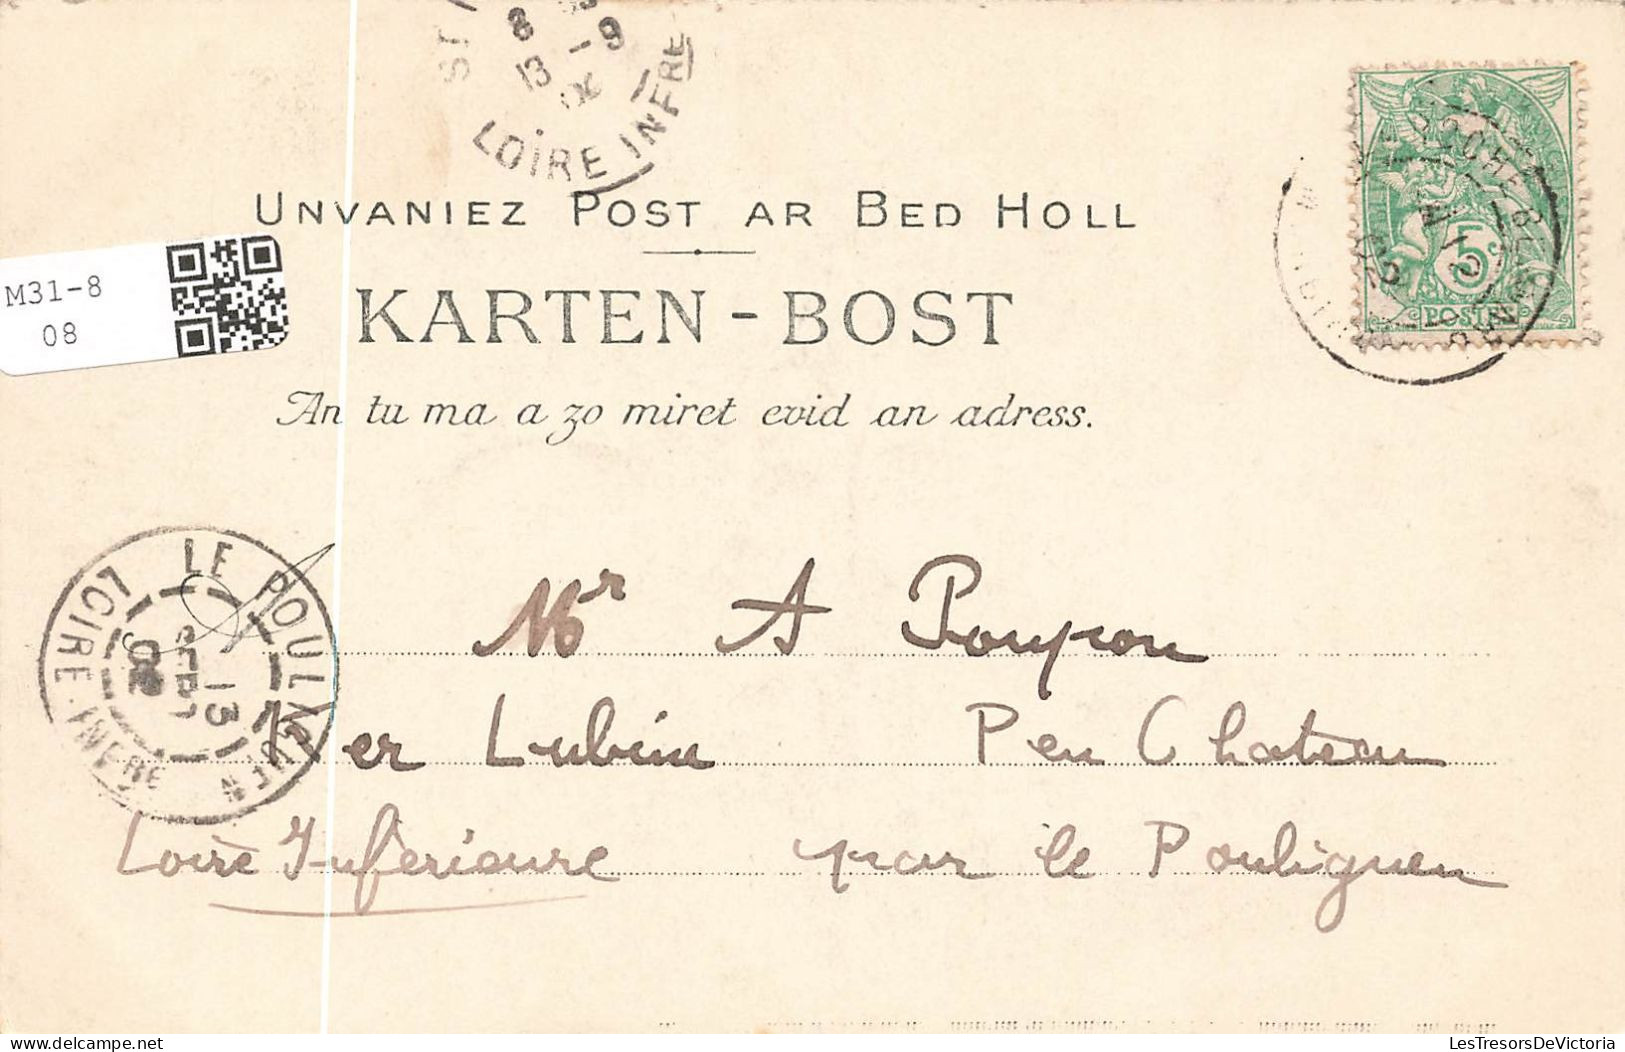 8
13 -9
02
LOIRE INFRE
UNVANIEZ POST AR BED HOLL
M31-8
08
KARTEN-BOST
An tu ma a zo miret evid an adress.
5c
POSTES
LE POULIGUEN
LOIRE-INFRE
13
SEPT
02
Mr A Pouyron
Ker Lubin Pen Chateau
Loire Inférieure par le Pouliguen
LesTresorsDeVictoria.com